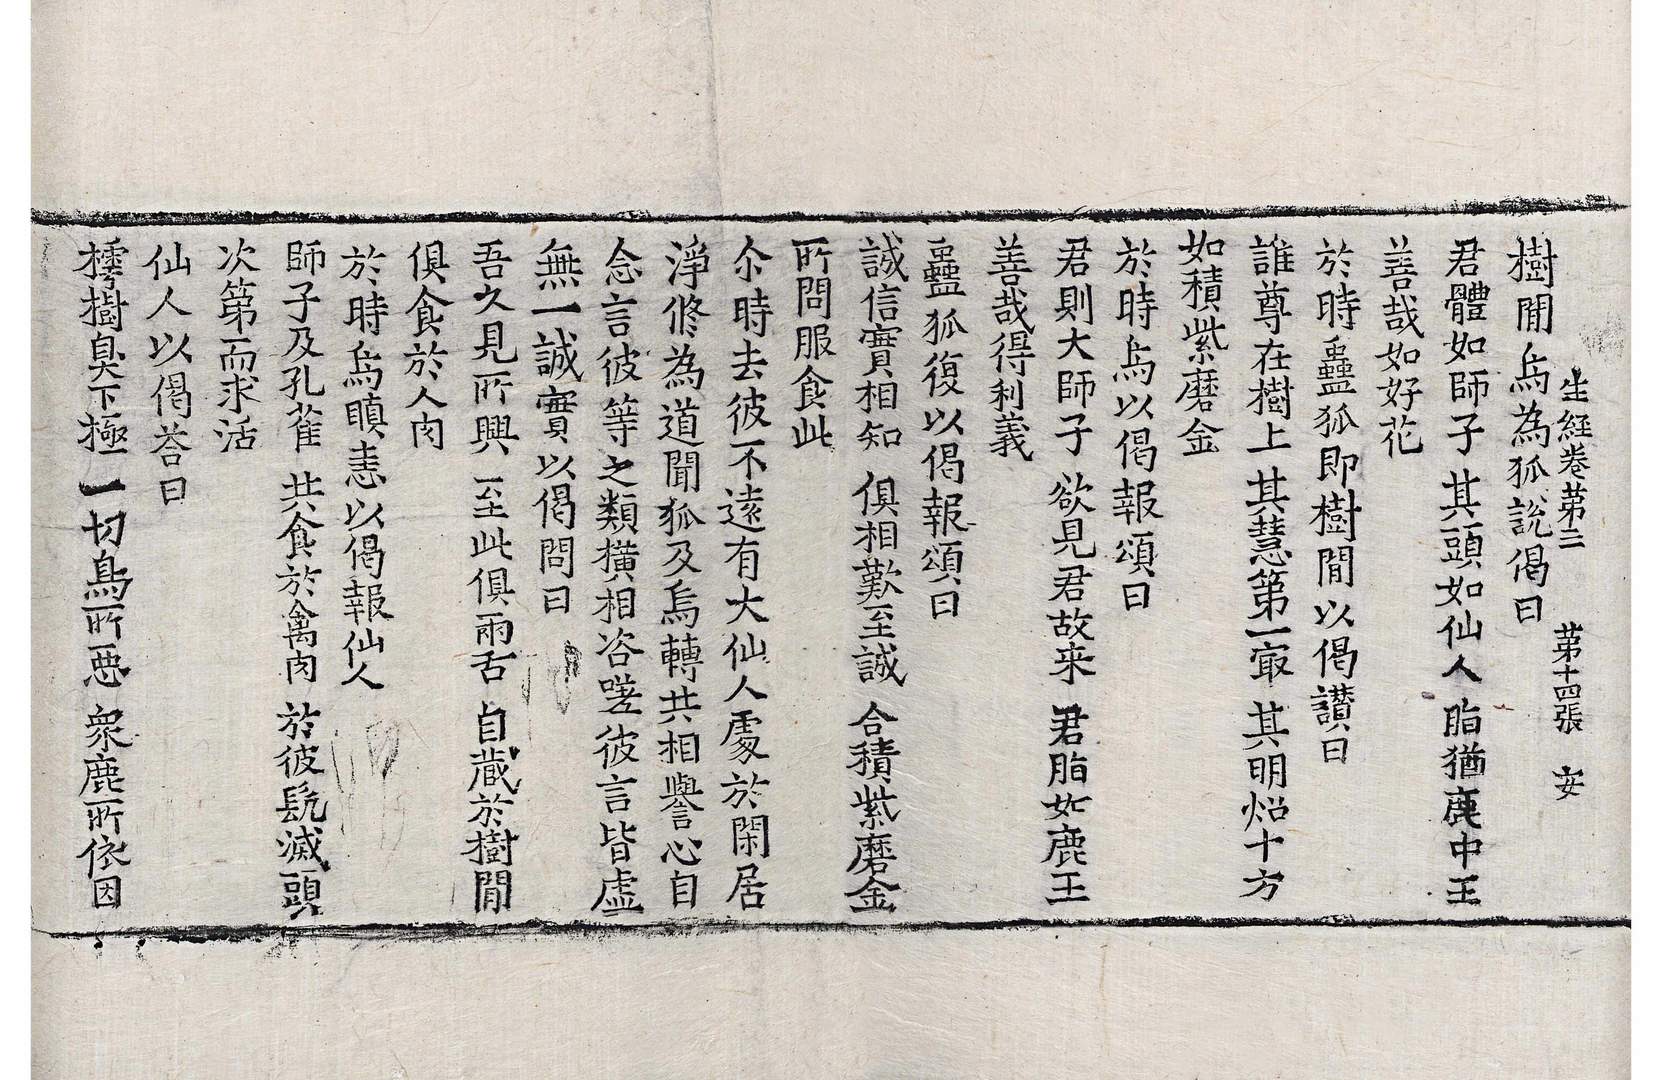 生經卷第三　第十四張　安
樹間烏為狐說偈曰
君體如師子　其頭如仙人　脂猶鹿中王
善哉如好花
於時蠱狐即樹間以偈讃曰
誰尊在樹上　其慧第一㝡　其明炤十方
如積紫磨金
於時烏以偈報頌曰
君則大師子　欲見君故来　君脂如鹿王
善哉得利義
蠱狐復以偈報頌曰
誠信實相知　俱相歎至誠　合積紫磨金
所問服食此
尒時去彼不遠有大仙人處於閑居
淨修為道聞狐及烏轉共相譽心自
念言彼等之類橫相咨嗟彼言皆虛
無一誠實以偈問曰
吾久見所興　至此俱兩舌　自藏於樹間
俱食於人肉
於時烏瞋恚以偈報仙人
師子及孔雀　共食於禽肉　於彼髡滅頭
次第而求活
仙人以偈荅曰
樗樹臭下極　一切鳥所惡　衆鹿所依因